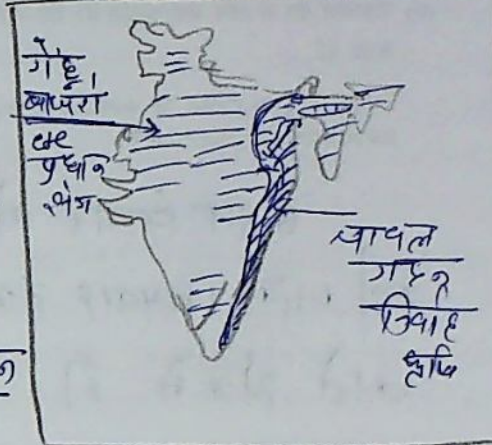 गेहूँ,
बाजरा
प्रधान
क्षेत्र
चावल
गहन
निर्वाह
कृषि